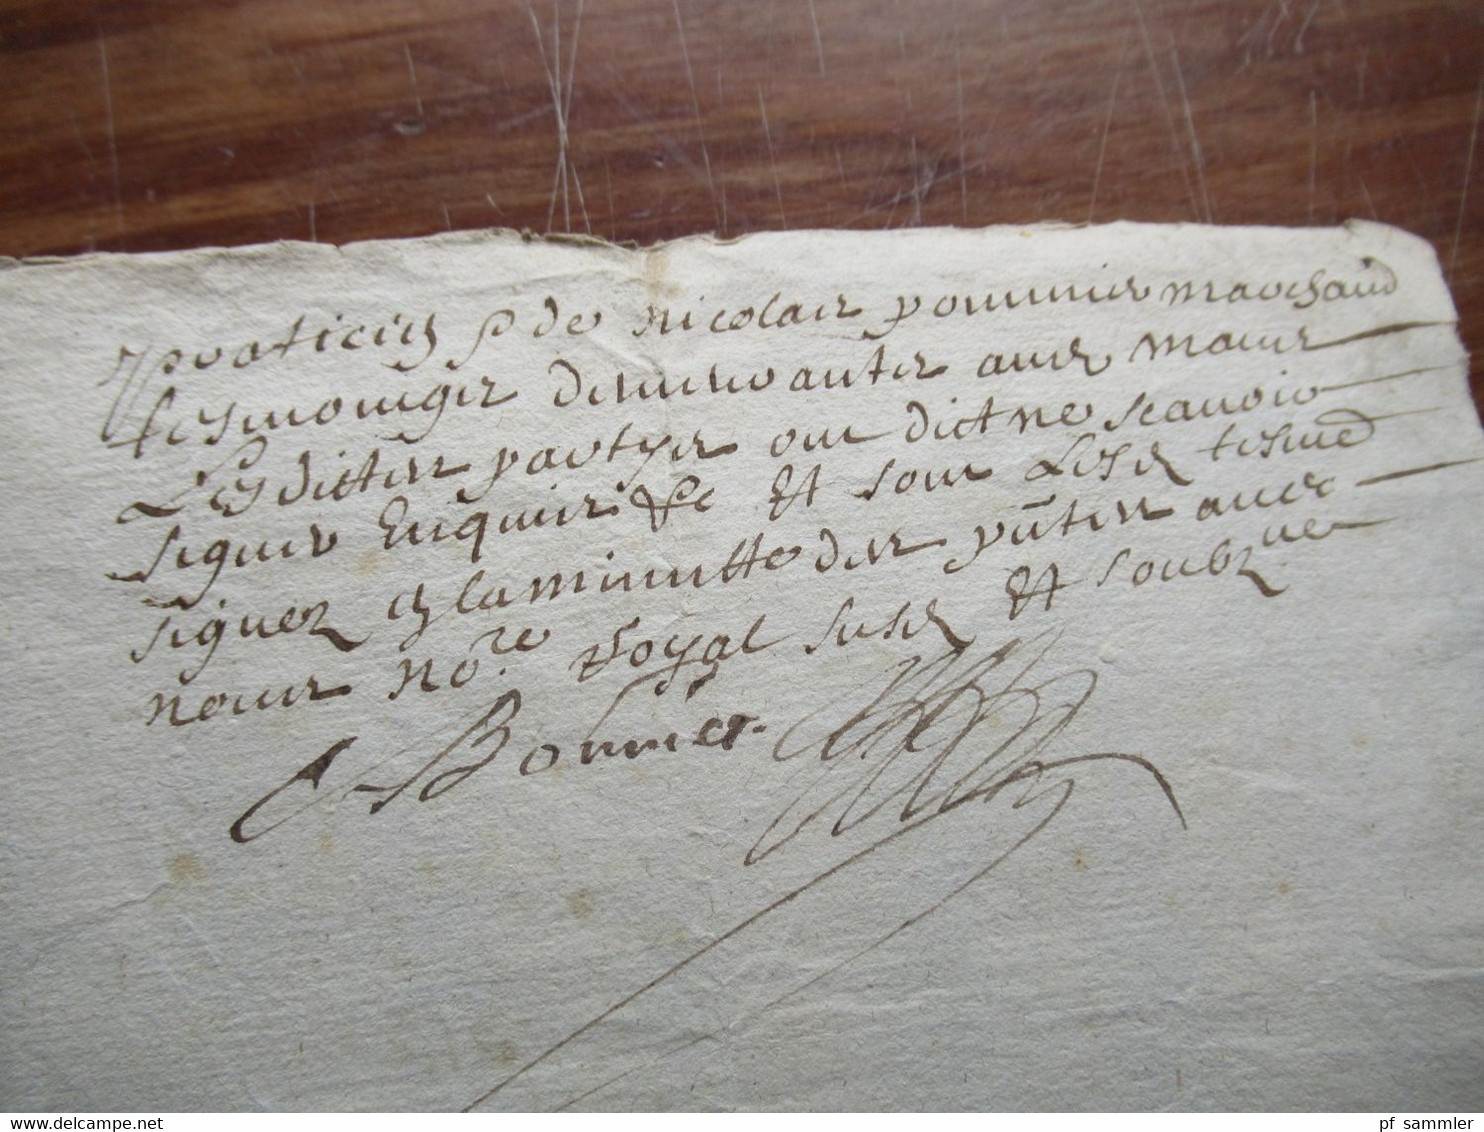 praticien & de nicolas pommier marchand
tesmoings demeurantz audt
Les dittes partyes ont dict ne scauoir
signer Enquis &c Et sont Lesd tesmd
signez en la minutte des pntes auec
nous nore Royal susd Et soubzne
Bonnet
www.delcampe.net
pf sammler